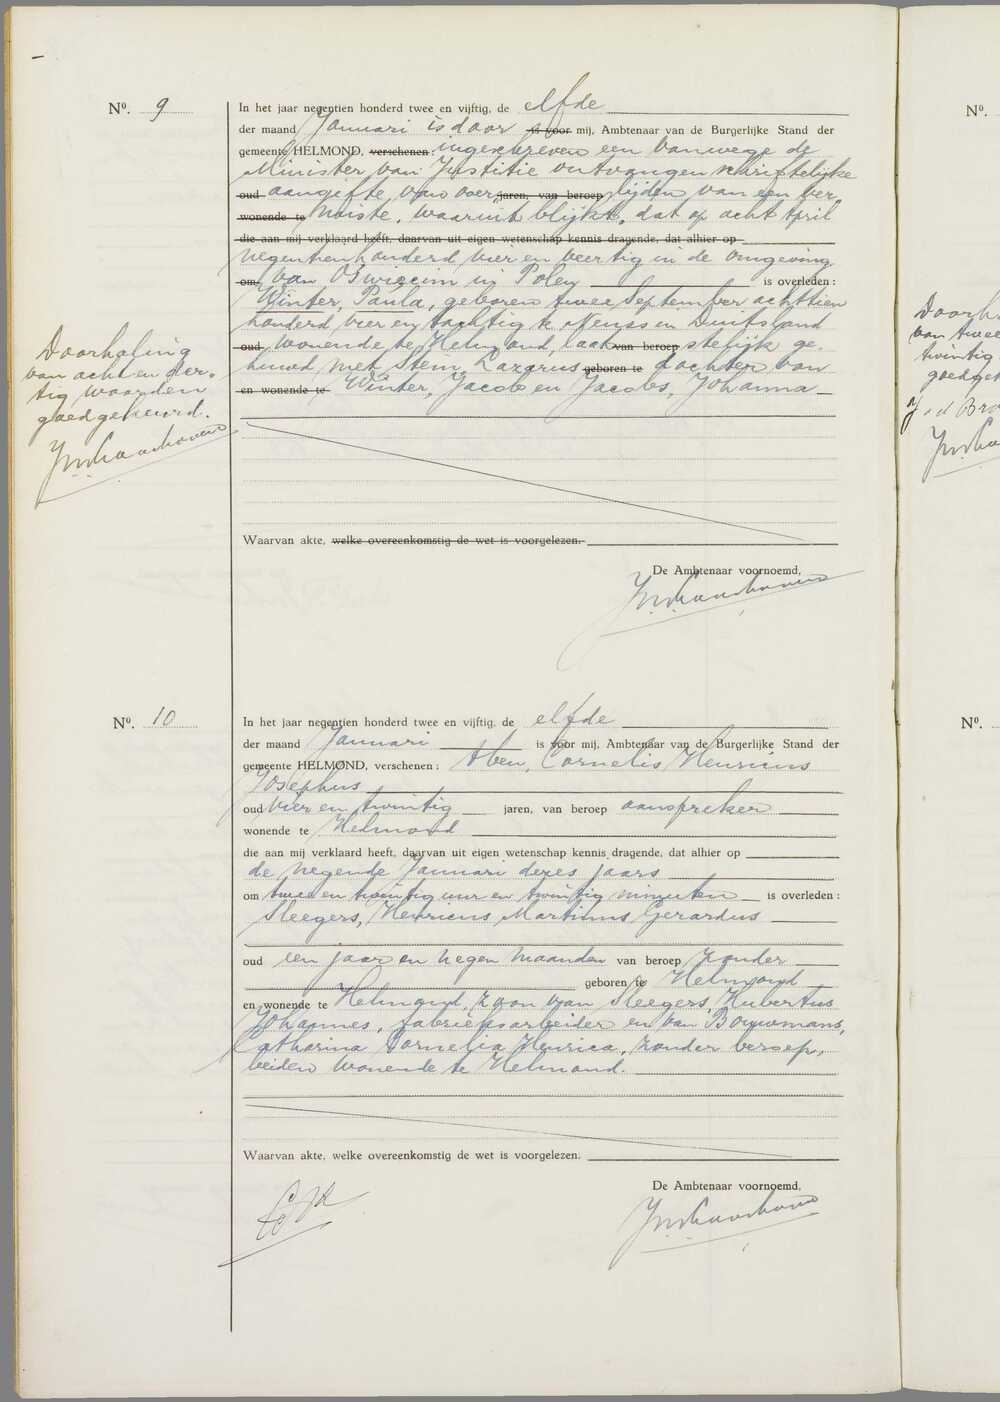 Nº. 9
In het jaar negentien honderd twee en vijftig, de elfde
der maand Januari is door is voor mij, Ambtenaar van de Burgerlijke Stand der
gemeente HELMOND, verschenen: ingeschreven een vanwege de
Minister van Justitie ontvangen schriftelijke
oud aangifte van over jaren, van beroep lijden van een ver-
wonende te miste, waaruit blijkt, dat op acht April
die aan mij verklaard heeft, daarvan uit eigen wetenschap kennis dragende, dat alhier op
negentienhonderd vier en veertig in de omgeving
om van Oswiecim in Polen is overleden:
Winter, Paula, geboren twee September achttien
honderd vier en tachtig te Neuss in Duitsland
oud wonende te Helmond, laat van beroep stelijk ge-
huwd met Stein, Lazarus geboren te dochter van
en wonende te Winter, Jacob en Jacobs, Johanna
Waarvan akte, welke overeenkomstig de wet is voorgelezen.
De Ambtenaar voornoemd,
Doorhaling
van acht en der-
tig woorden
goedgekeurd.
Nº. 10
In het jaar negentien honderd twee en vijftig, de elfde
der maand Januari is voor mij, Ambtenaar van de Burgerlijke Stand der
gemeente HELMOND, verschenen: Aben, Cornelis Henricus
Josephus
oud vier en twintig jaren, van beroep aanspreker
wonende te Helmond
die aan mij verklaard heeft, daarvan uit eigen wetenschap kennis dragende, dat alhier op
de negende Januari dezes jaars
om twee en twintig uur en twintig minuten is overleden:
Sleegers, Henricus Martinus Gerardus
oud een jaar en negen maanden van beroep zonder
geboren te Helmond
en wonende te Helmond, zoon van Sleegers, Hubertus
Johannes, fabrieksarbeider en van Bouwmans,
Catharina Cornelia Henrica, zonder beroep,
beiden wonende te Helmond.
Waarvan akte, welke overeenkomstig de wet is voorgelezen.
De Ambtenaar voornoemd,
Nº.
van twee
twintig
goedgek
Nº.